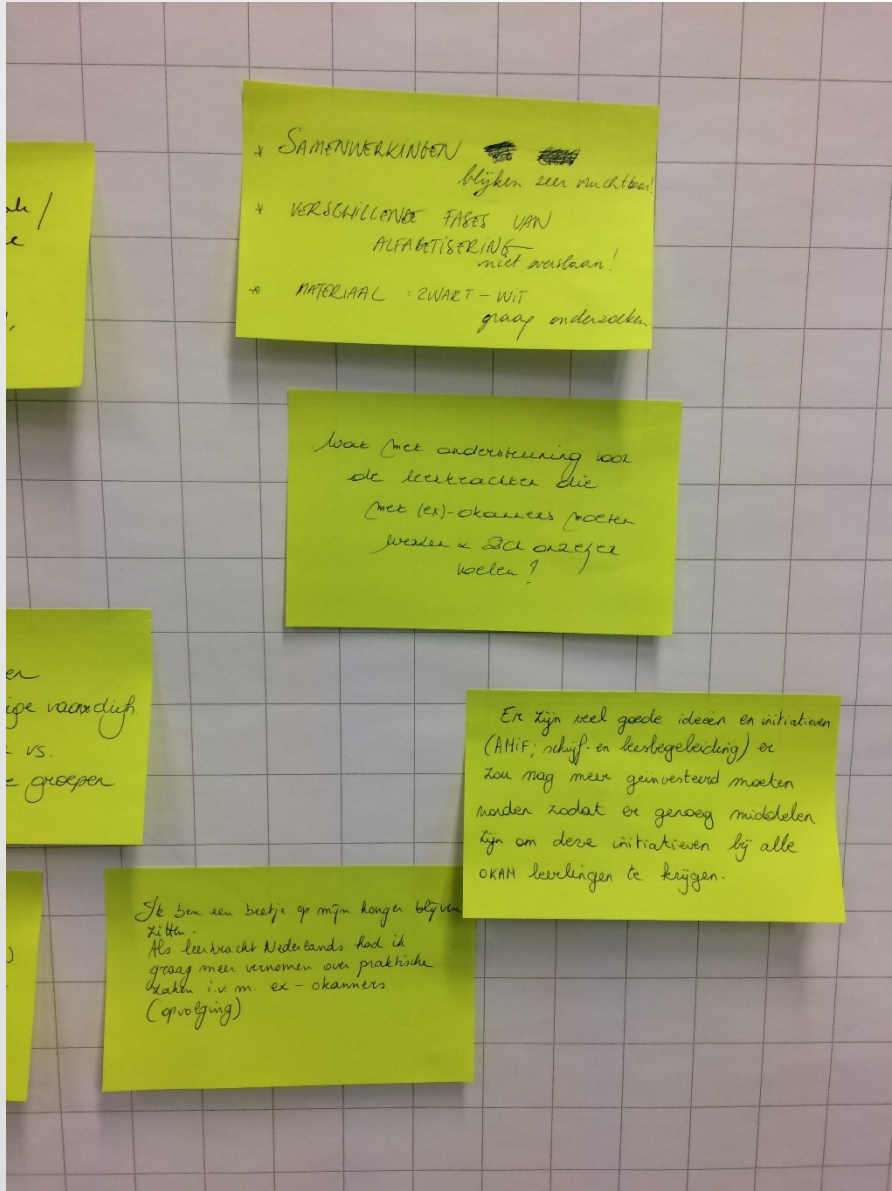 * SAMENWERKINGEN
blijken zeer vruchtbaar!
* VERSCHILLENDE FASES VAN
ALFABETISERING
niet overslaan!
* MATERIAAL : ZWART – WIT
graag onderzoeken
Wat met ondersteuning voor
de leerkrachten die
met (ex)-okanners moeten
werken & zich onzeker
voelen?
ige vaardigh.
vs.
groepen
Er zijn veel goede ideeën en initiatieven
(AMIF; schrijf- en leesbegeleiding) er
zou nog meer geïnvesteerd moeten
worden zodat er genoeg middelen
zijn om deze initiatieven bij alle
OKAN leerlingen te krijgen.
Ik ben een beetje op mijn honger blijven
zitten.
Als leerkracht Nederlands had ik
graag meer vernomen over praktische
zaken i.v.m. ex-okanners
(opvolging)